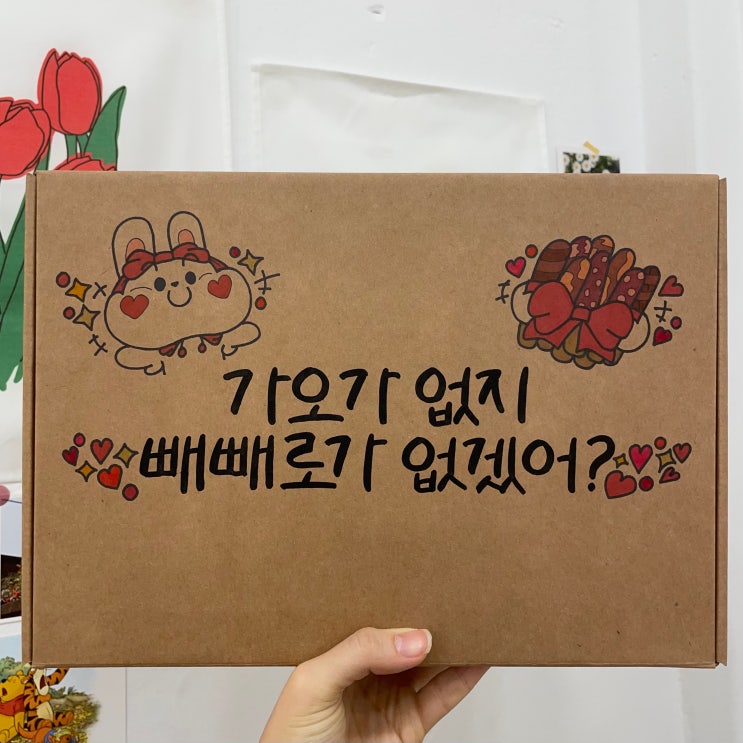 가오가 없지
빼빼로가 없겠어?